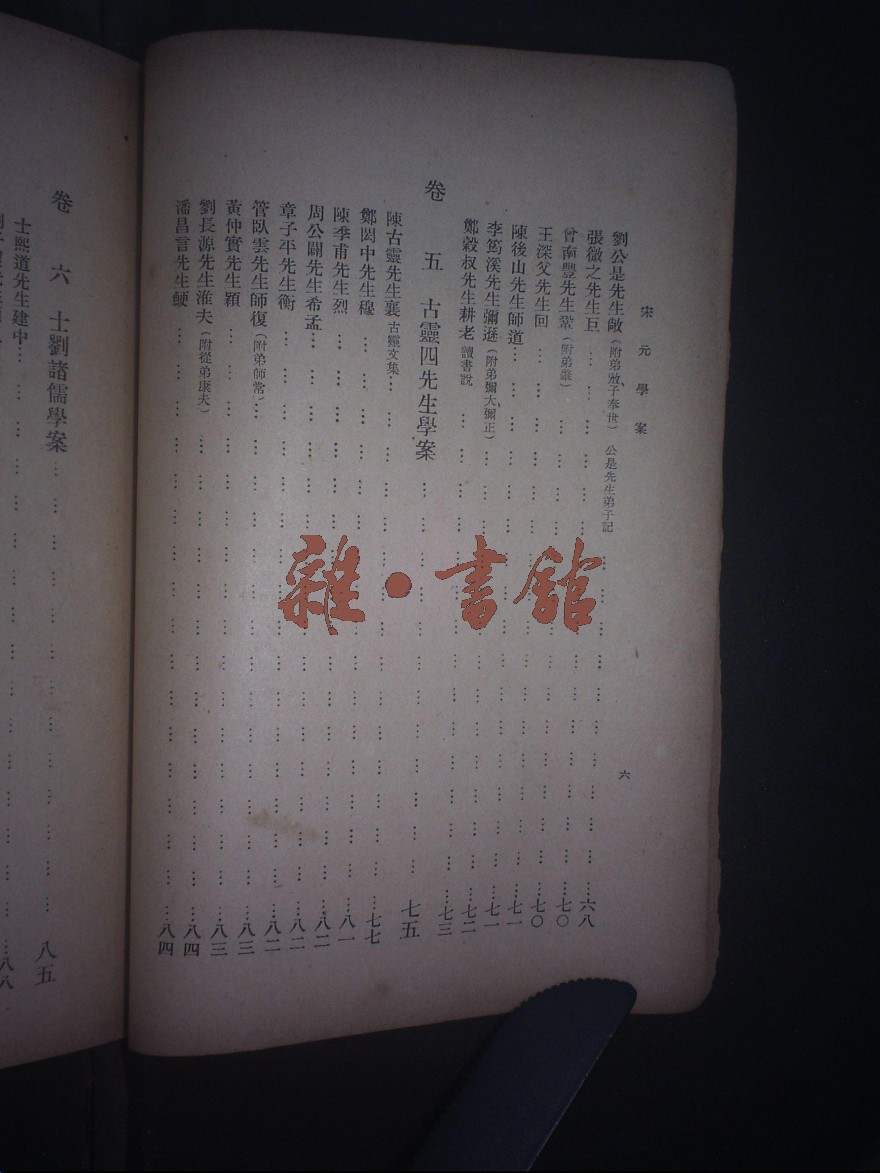 宋元學案
六
劉公是先生敞(附弟攽、子奉世) 公是先生弟子記…六八
張微之先生巨…七〇
曾南豐先生鞏(附弟肇)…七〇
王深父先生回…七一
陳後山先生師道…七一
李筠溪先生彌遜(附弟彌大、彌正)…七二
鄭穀叔先生耕老 讀書說…七三
卷五 古靈四先生學案…七五
陳古靈先生襄 古靈文集…七七
鄭閎中先生穆…八一
陳季甫先生烈…八二
周公闢先生希孟…八二
章子平先生衡…八二
管臥雲先生師復(附弟師常)…八三
黃仲實先生穎…八三
劉長源先生淮夫(附從弟康夫)…八四
潘昌言先生鯁…八四
卷六 士劉諸儒學案…八五
士熙道先生建中…八八
雜·書館